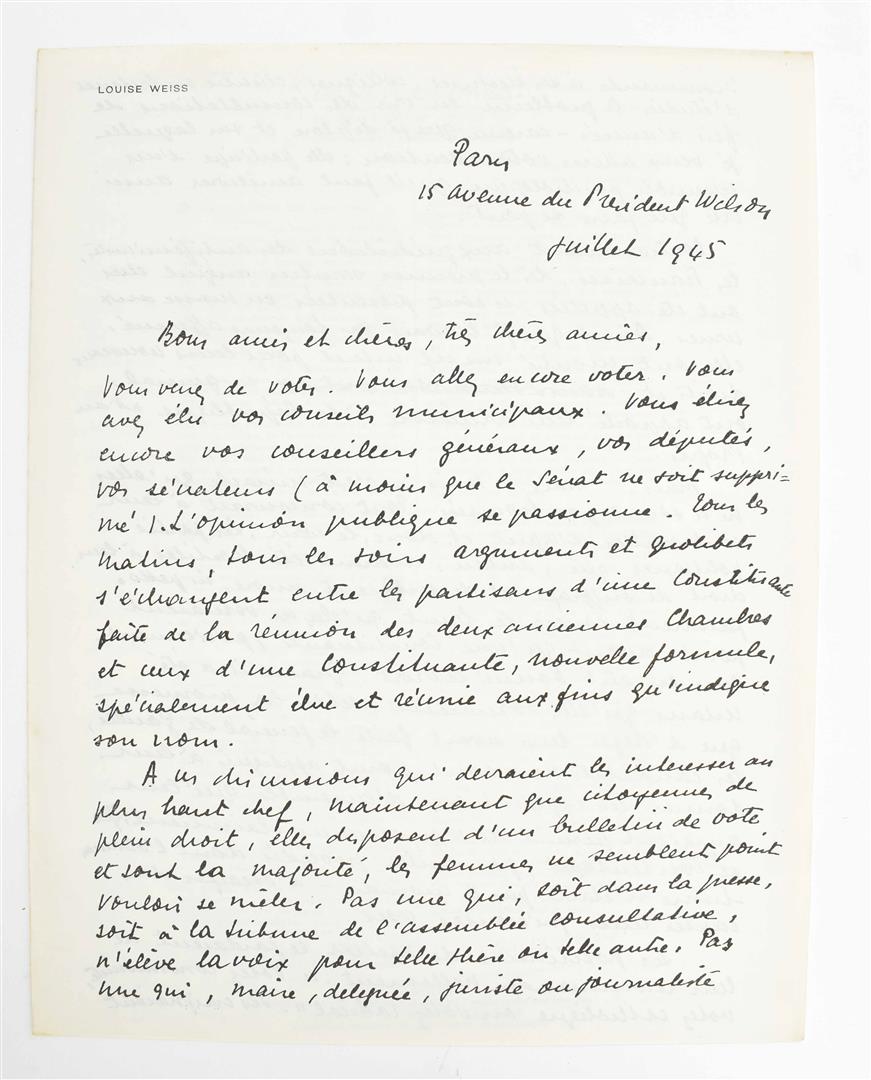 LOUISE WEISS
Paris
15 avenue du Président Wilson
juillet 1945
Bons amis et chères, très chères amies,
Vous venez de voter. Vous allez encore voter. Vous
avez élu vos conseils municipaux. Vous élirez
encore vos conseillers généraux, vos députés,
vos sénateurs (à moins que le Sénat ne soit suppri=
mé). L'opinion publique se passionne. Tous les
matins, tous les soirs arguments et quolibets
s'échangent entre les partisans d'une Constituante
faite de la réunion des deux anciennes Chambres
et ceux d'une Constituante, nouvelle formule,
spécialement élue et réunie aux fins qu'indique
son nom.
A ces discussions qui devraient les interesser au
plus haut chef, maintenant que citoyennes de
plein droit, elles disposent d'un bulletin de vote
et sont la majorité, les femmes ne semblent point
vouloir se mêler. Pas une qui, soit dans la presse,
soit à la tribune de l'assemblée consultative,
n'élève la voix pour telle thèse ou telle autre. Pas
une qui, maire, déléguée, juriste ou journaliste